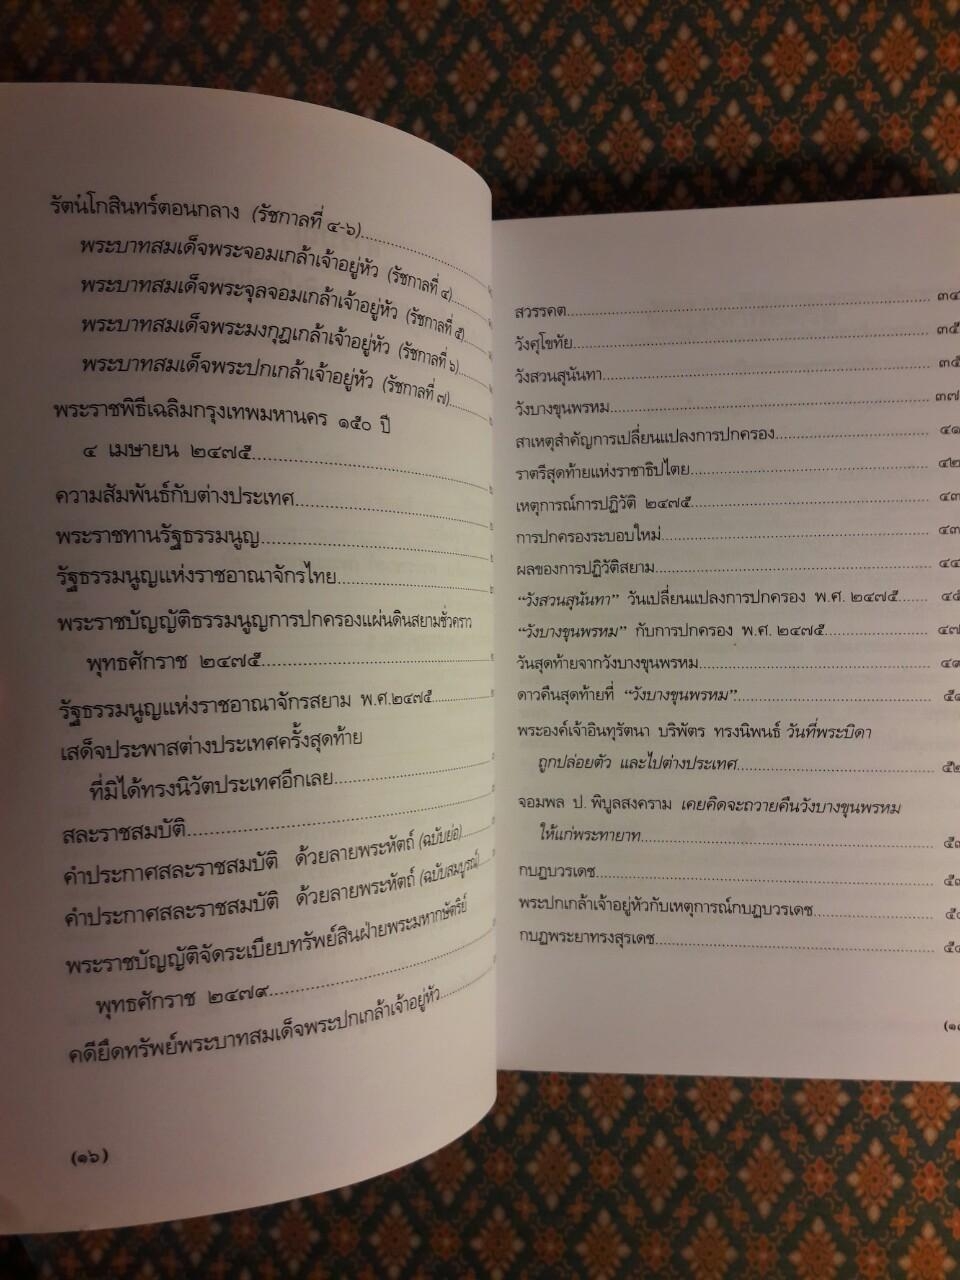 รัตน์โกสินทร์ตอนกลาง (รัชกาลที่ ๔-๖)
พระบาทสมเด็จพระจอมเกล้าเจ้าอยู่หัว (รัชกาลที่ ๔)
พระบาทสมเด็จพระจุลจอมเกล้าเจ้าอยู่หัว (รัชกาลที่ ๕)
พระบาทสมเด็จพระมงกุฎเกล้าเจ้าอยู่หัว (รัชกาลที่ ๖)
พระบาทสมเด็จพระปกเกล้าเจ้าอยู่หัว (รัชกาลที่ ๗)
พระราชพิธีเฉลิมกรุงเทพมหานคร ๑๕๐ ปี
๔ เมษายน ๒๔๗๕
ความสัมพันธ์กับต่างประเทศ
พระราชทานรัฐธรรมนูญ
รัฐธรรมนูญแห่งราชอาณาจักรไทย
พระราชบัญญัติธรรมนูญการปกครองแผ่นดินสยามชั่วคราว
พุทธศักราช ๒๔๗๕
รัฐธรรมนูญแห่งราชอาณาจักรสยาม พ.ศ.๒๔๗๕
เสด็จประพาสต่างประเทศครั้งสุดท้าย
ที่มิได้ทรงนิวัตประเทศอีกเลย
สละราชสมบัติ
คำประกาศสละราชสมบัติ ด้วยลายพระหัตถ์ (ฉบับย่อ)
คำประกาศสละราชสมบัติ ด้วยลายพระหัตถ์ (ฉบับสมบูรณ์)
พระราชบัญญัติจัดระเบียบทรัพย์สินฝ่ายพระมหากษัตริย์
พุทธศักราช ๒๔๗๙
คดียึดทรัพย์พระบาทสมเด็จพระปกเกล้าเจ้าอยู่หัว
(๑๖)
สวรรคต
วังศุโขทัย
วังสวนสุนันทา
วังบางขุนพรหม
สาเหตุสำคัญการเปลี่ยนแปลงการปกครอง
ราตรีสุดท้ายแห่งราชาธิปไตย
เหตุการณ์การปฏิวัติ ๒๔๗๕
การปกครองระบอบใหม่
ผลของการปฏิวัติสยาม
“วังสวนสุนันทา” วันเปลี่ยนแปลงการปกครอง พ.ศ. ๒๔๗๕
“วังบางขุนพรหม” กับการปกครอง พ.ศ. ๒๔๗๕
วันสุดท้ายจากวังบางขุนพรหม
ดาวคืนสุดท้ายที่ “วังบางขุนพรหม”
พระองค์เจ้าอินทุรัตนา บริพัตร ทรงนิพนธ์ วันที่พระบิดา
ถูกปล่อยตัว และไปต่างประเทศ
จอมพล ป. พิบูลสงคราม เคยคิดจะถวายคืนวังบางขุนพรหม
ให้แก่พระทายาท
กบฏบวรเดช
พระปกเกล้าเจ้าอยู่หัวกับเหตุการณ์กบฏบวรเดช
กบฏพระยาทรงสุรเดช